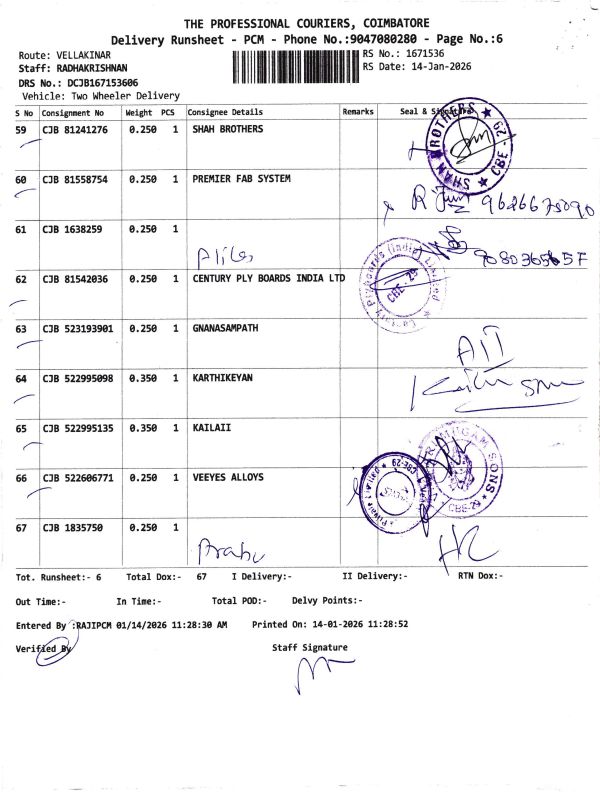 THE PROFESSIONAL COURIERS, COIMBATORE
Delivery Runsheet - PCM - Phone No.:9047080280 - Page No.:6
Route: VELLAKINAR RS No.: 1671536
Staff: RADHAKRISHNAN RS Date: 14-Jan-2026
DRS No.: DCJB167153606
Vehicle: Two Wheeler Delivery
S No Consignment No Weight PCS Consignee Details Remarks Seal &
59 CJB 81241276 0.250 1 SHAH BROTHERS
SHAH BROTHERS ★ CBE - 29 ★
60 CJB 81558754 0.250 1 PREMIER FAB SYSTEM
61 CJB 1638259 0.250 1
62 CJB 81542036 0.250 1 CENTURY PLY BOARDS INDIA LTD
CBE - 29
63 CJB 523193901 0.250 1 GNANASAMPATH
64 CJB 522995098 0.350 1 KARTHIKEYAN
65 CJB 522995135 0.350 1 KAILAII
66 CJB 522606771 0.250 1 VEEYES ALLOYS
CBE-29
67 CJB 1835750 0.250 1
Tot. Runsheet:- 6 Total Dox:- 67 I Delivery:- II Delivery:- RTN Dox:-
Out Time:- In Time:- Total POD:- Delvy Points:-
Entered By :RAJIPCM 01/14/2026 11:28:30 AM Printed On: 14-01-2026 11:28:52
Verified By Staff Signature